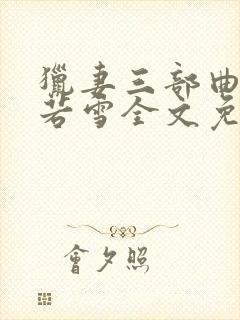 獵妻三部曲
若雪全文免
會夕照